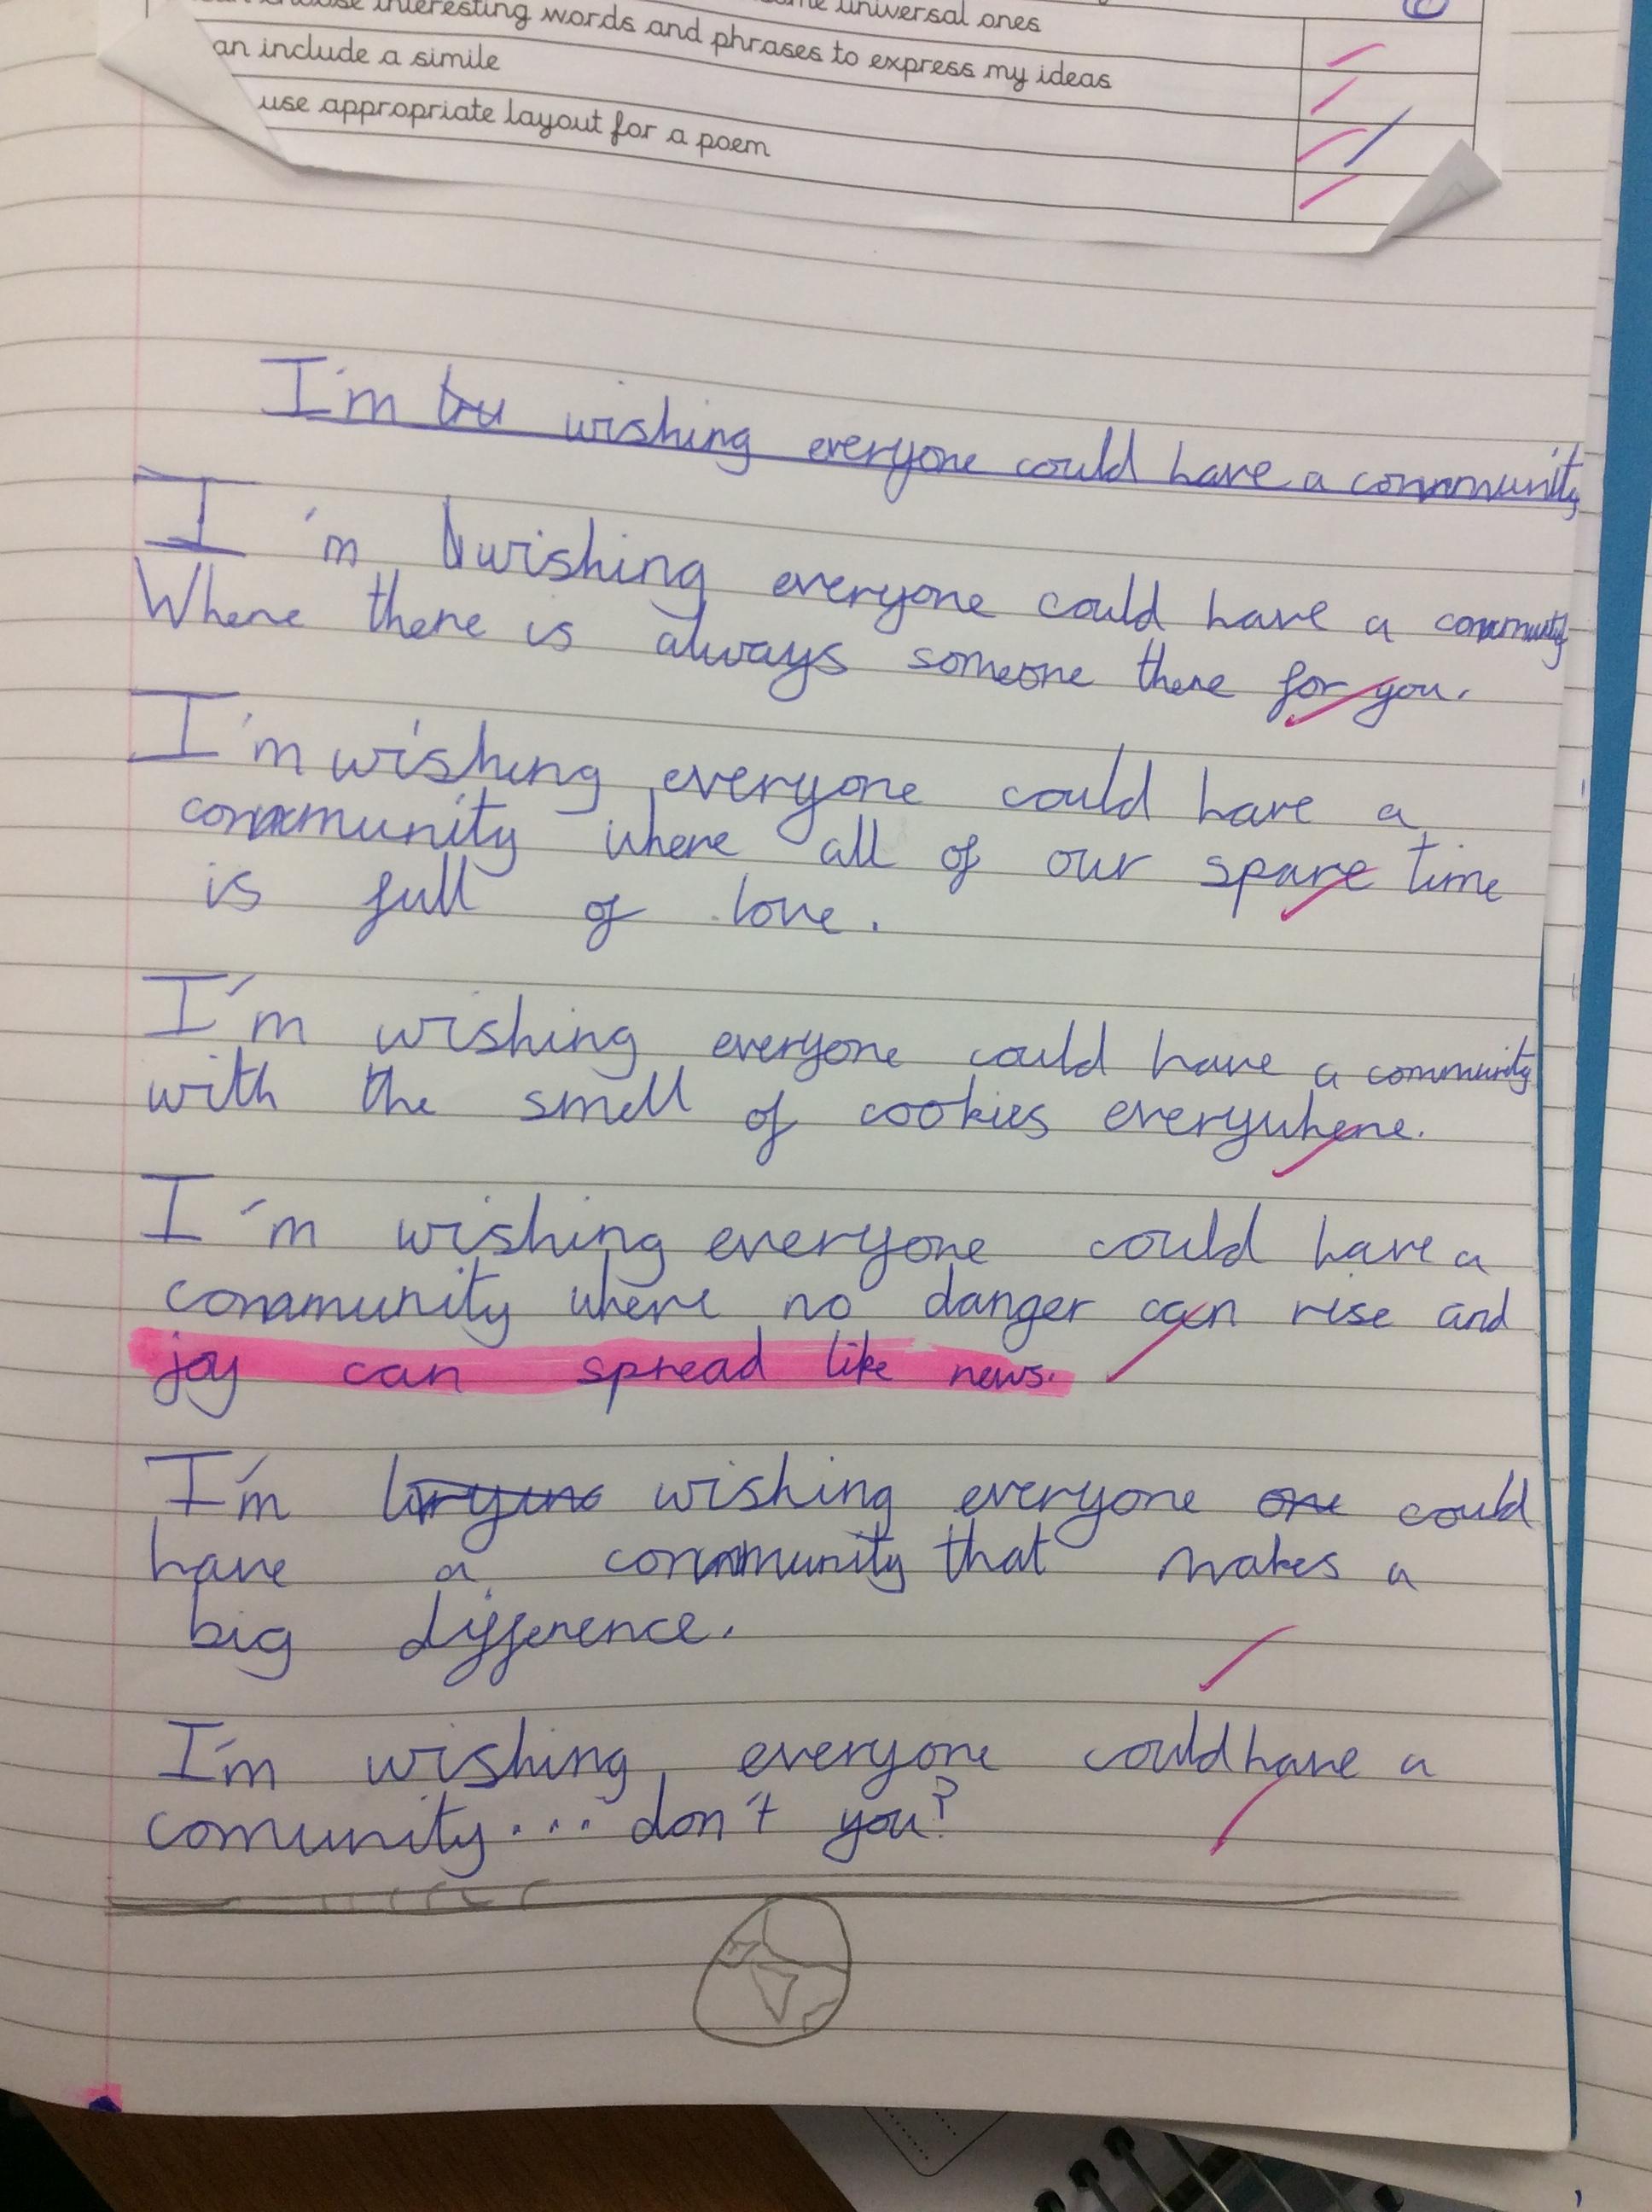 interesting words and phrases to express my ideas
universal ones
an include a simile
use appropriate layout for a poem
I'm wishing everyone could have a community
I'm wishing everyone could have a community
Where there is always someone there for you.
I'm wishing everyone could have a
community where all of our spare time
is full of love.
I'm wishing everyone could have a community
with the smell of cookies everywhere.
I'm wishing everyone could have a
community where no danger can rise and
joy can spread like news.
I'm wishing everyone one could
have a community that makes a
big difference.
I'm wishing everyone could have a
comunity... don't you?